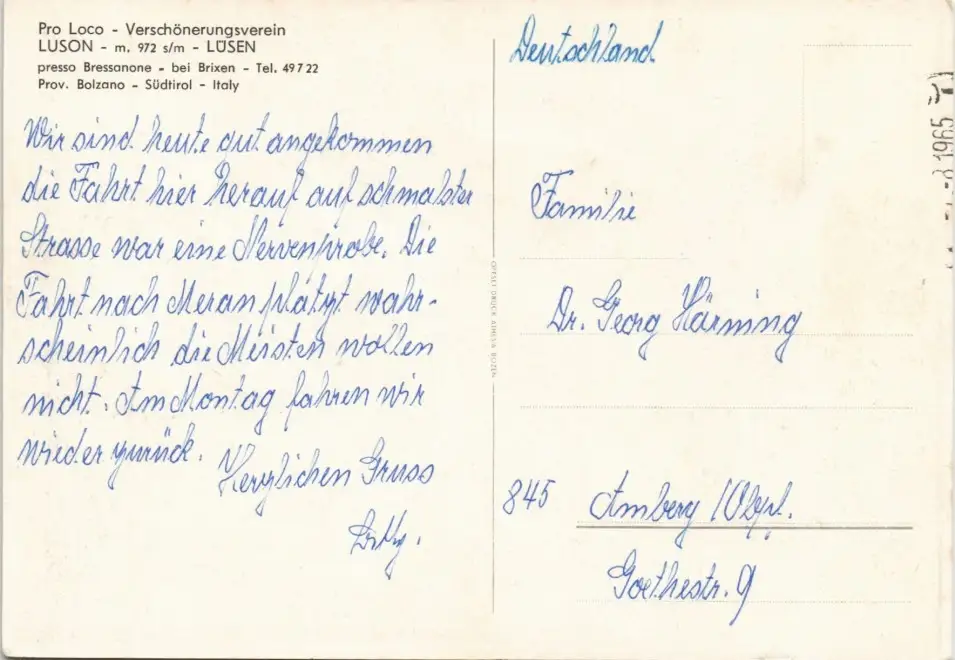 Pro Loco - Verschönerungsverein
LUSON - m. 972 s/m - LÜSEN
presso Bressanone - bei Brixen - Tel. 49722
Prov. Bolzano - Südtirol - Italy
Wir sind heute gut angekommen
die Fahrt hier herauf auf schmalster
Strasse war eine Nervenprobe. Die
Fahrt nach Meran plätzt wahr-
scheinlich die Meisten wollen
nicht. Am Montag fahren wir
wieder zurück.
Herzlichen Gruss
Deutschland
Familie
Dr. Georg Härning
845 Amberg /Obpf.
Goethestr. 9
8 1965